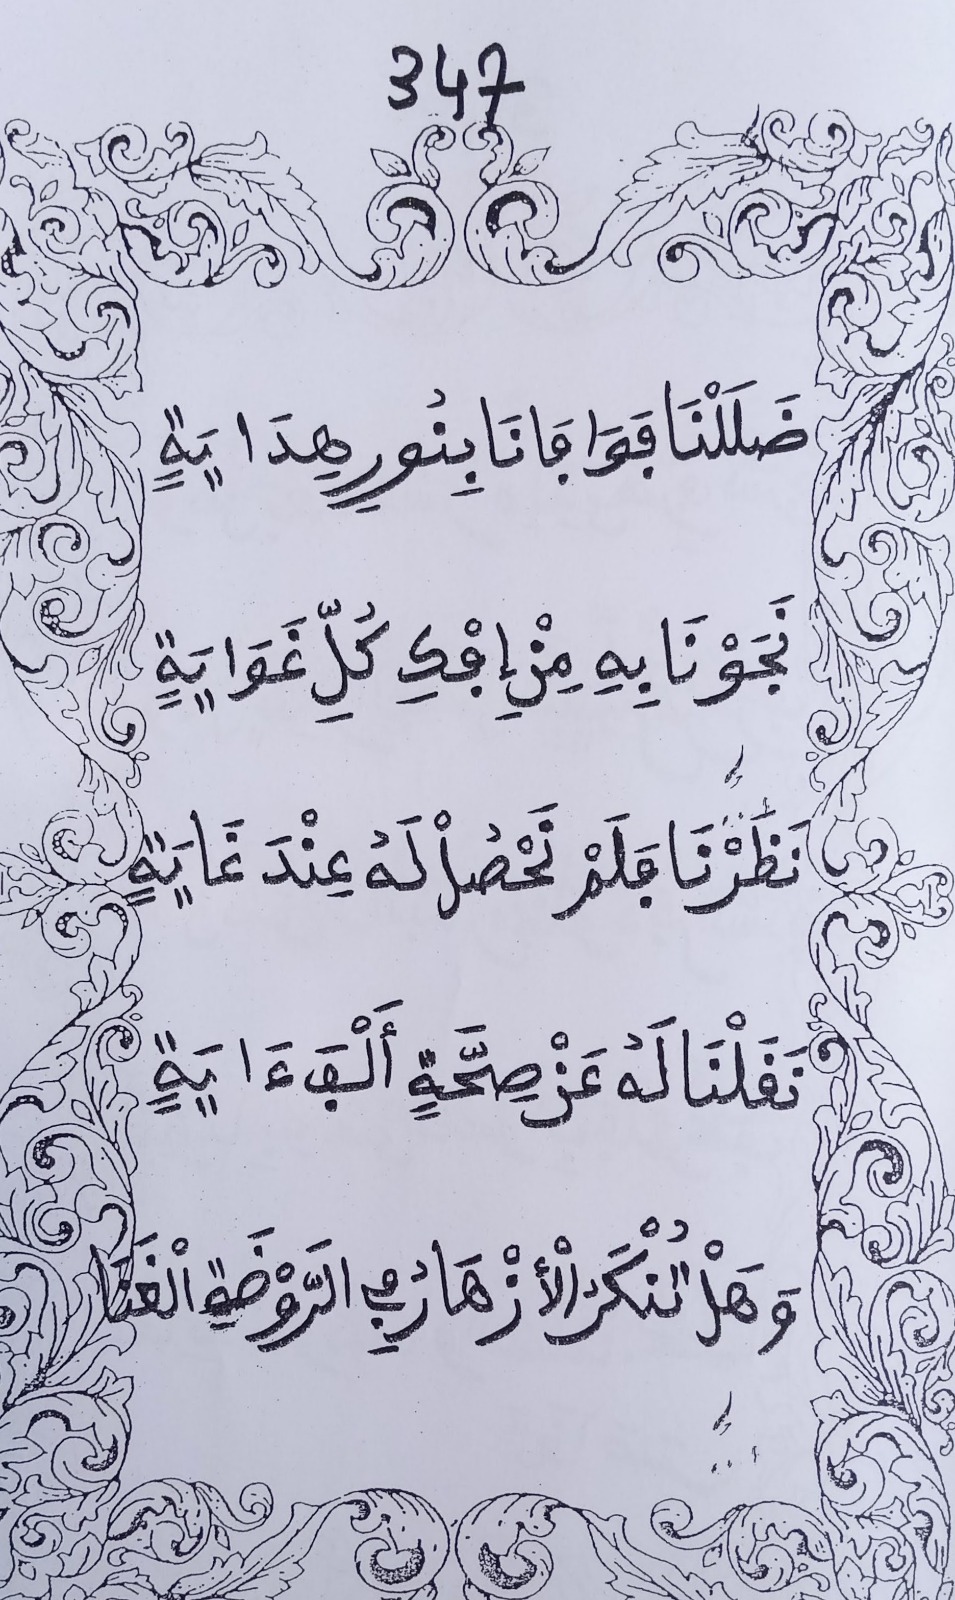 347
ضَلَلْنَا فَوَافَانَا بِنُورِ هِدَايَةٍ
نَجَوْنَا بِهِ مِنْ إِفْكِ كُلِّ غَوَايَةٍ
نَظَرْنَا فَلَمْ نَحْصُلْ لَهُ عِنْدَ غَايَةٍ
نَقَلْنَا لَهُ عَنْ صِحَّةٍ أَلْفَ ءَايَةٍ
وَهَلْ تُنْكَرُ الْأَزْهَارُ فِي الرَّوْضَةِ الْغَنَّا